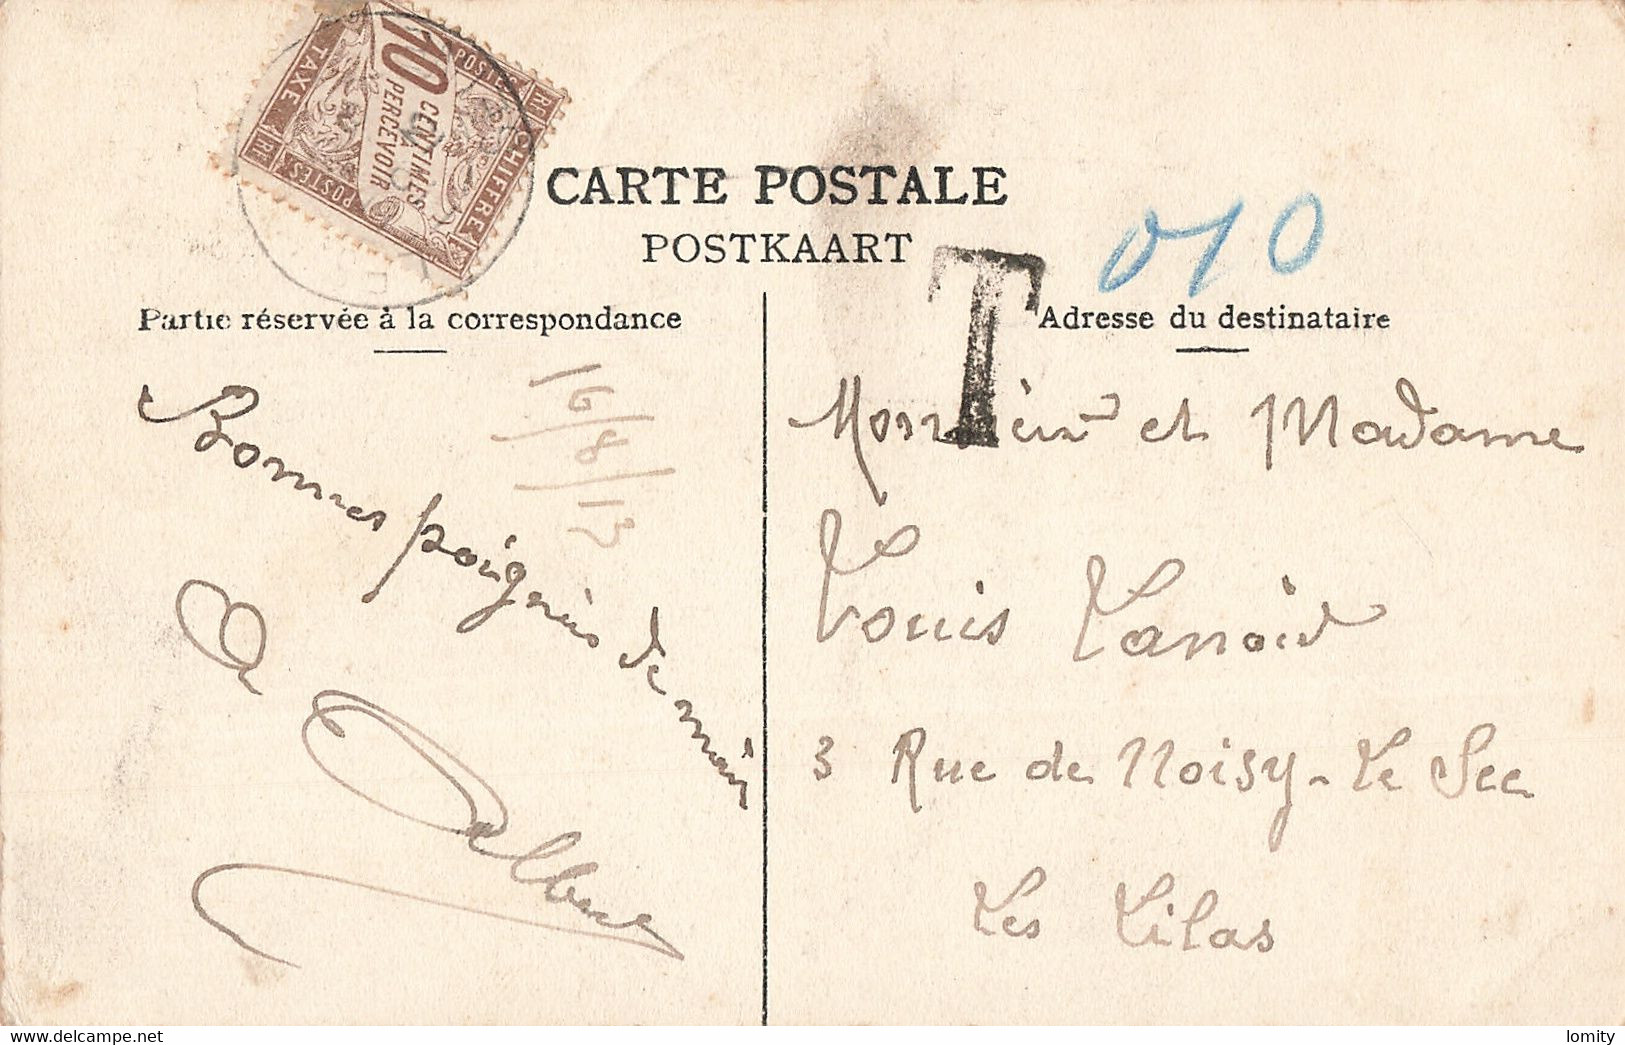 10
CENTIMES
A
PERCEVOIR
CHIFFRE
TAXE
POSTES
POSTES
RF
RF
CARTE POSTALE
POSTKAART
010
T
Partie réservée à la correspondance
Adresse du destinataire
16/8/13
Bonnes poignées de main
Monsieur et Madame
Louis Lanoix
3 Rue de Noisy-Le Sec
Les Lilas
lomity